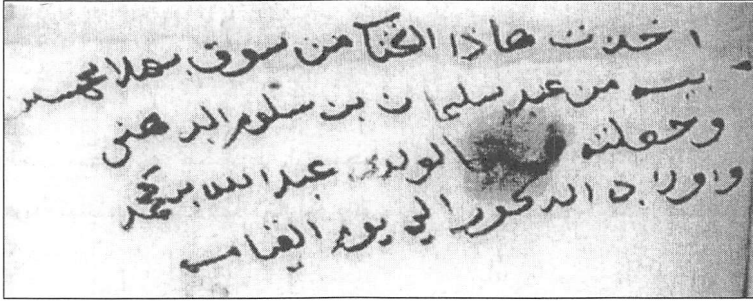 اخذت هاذا الكتا من سوق بهلا بخمسة
بيسه من عند سليمان بن سلوم الدهني
وجعلته لولدي عبد الله بن محمد
واولاده الدكور الى يوم القيامه